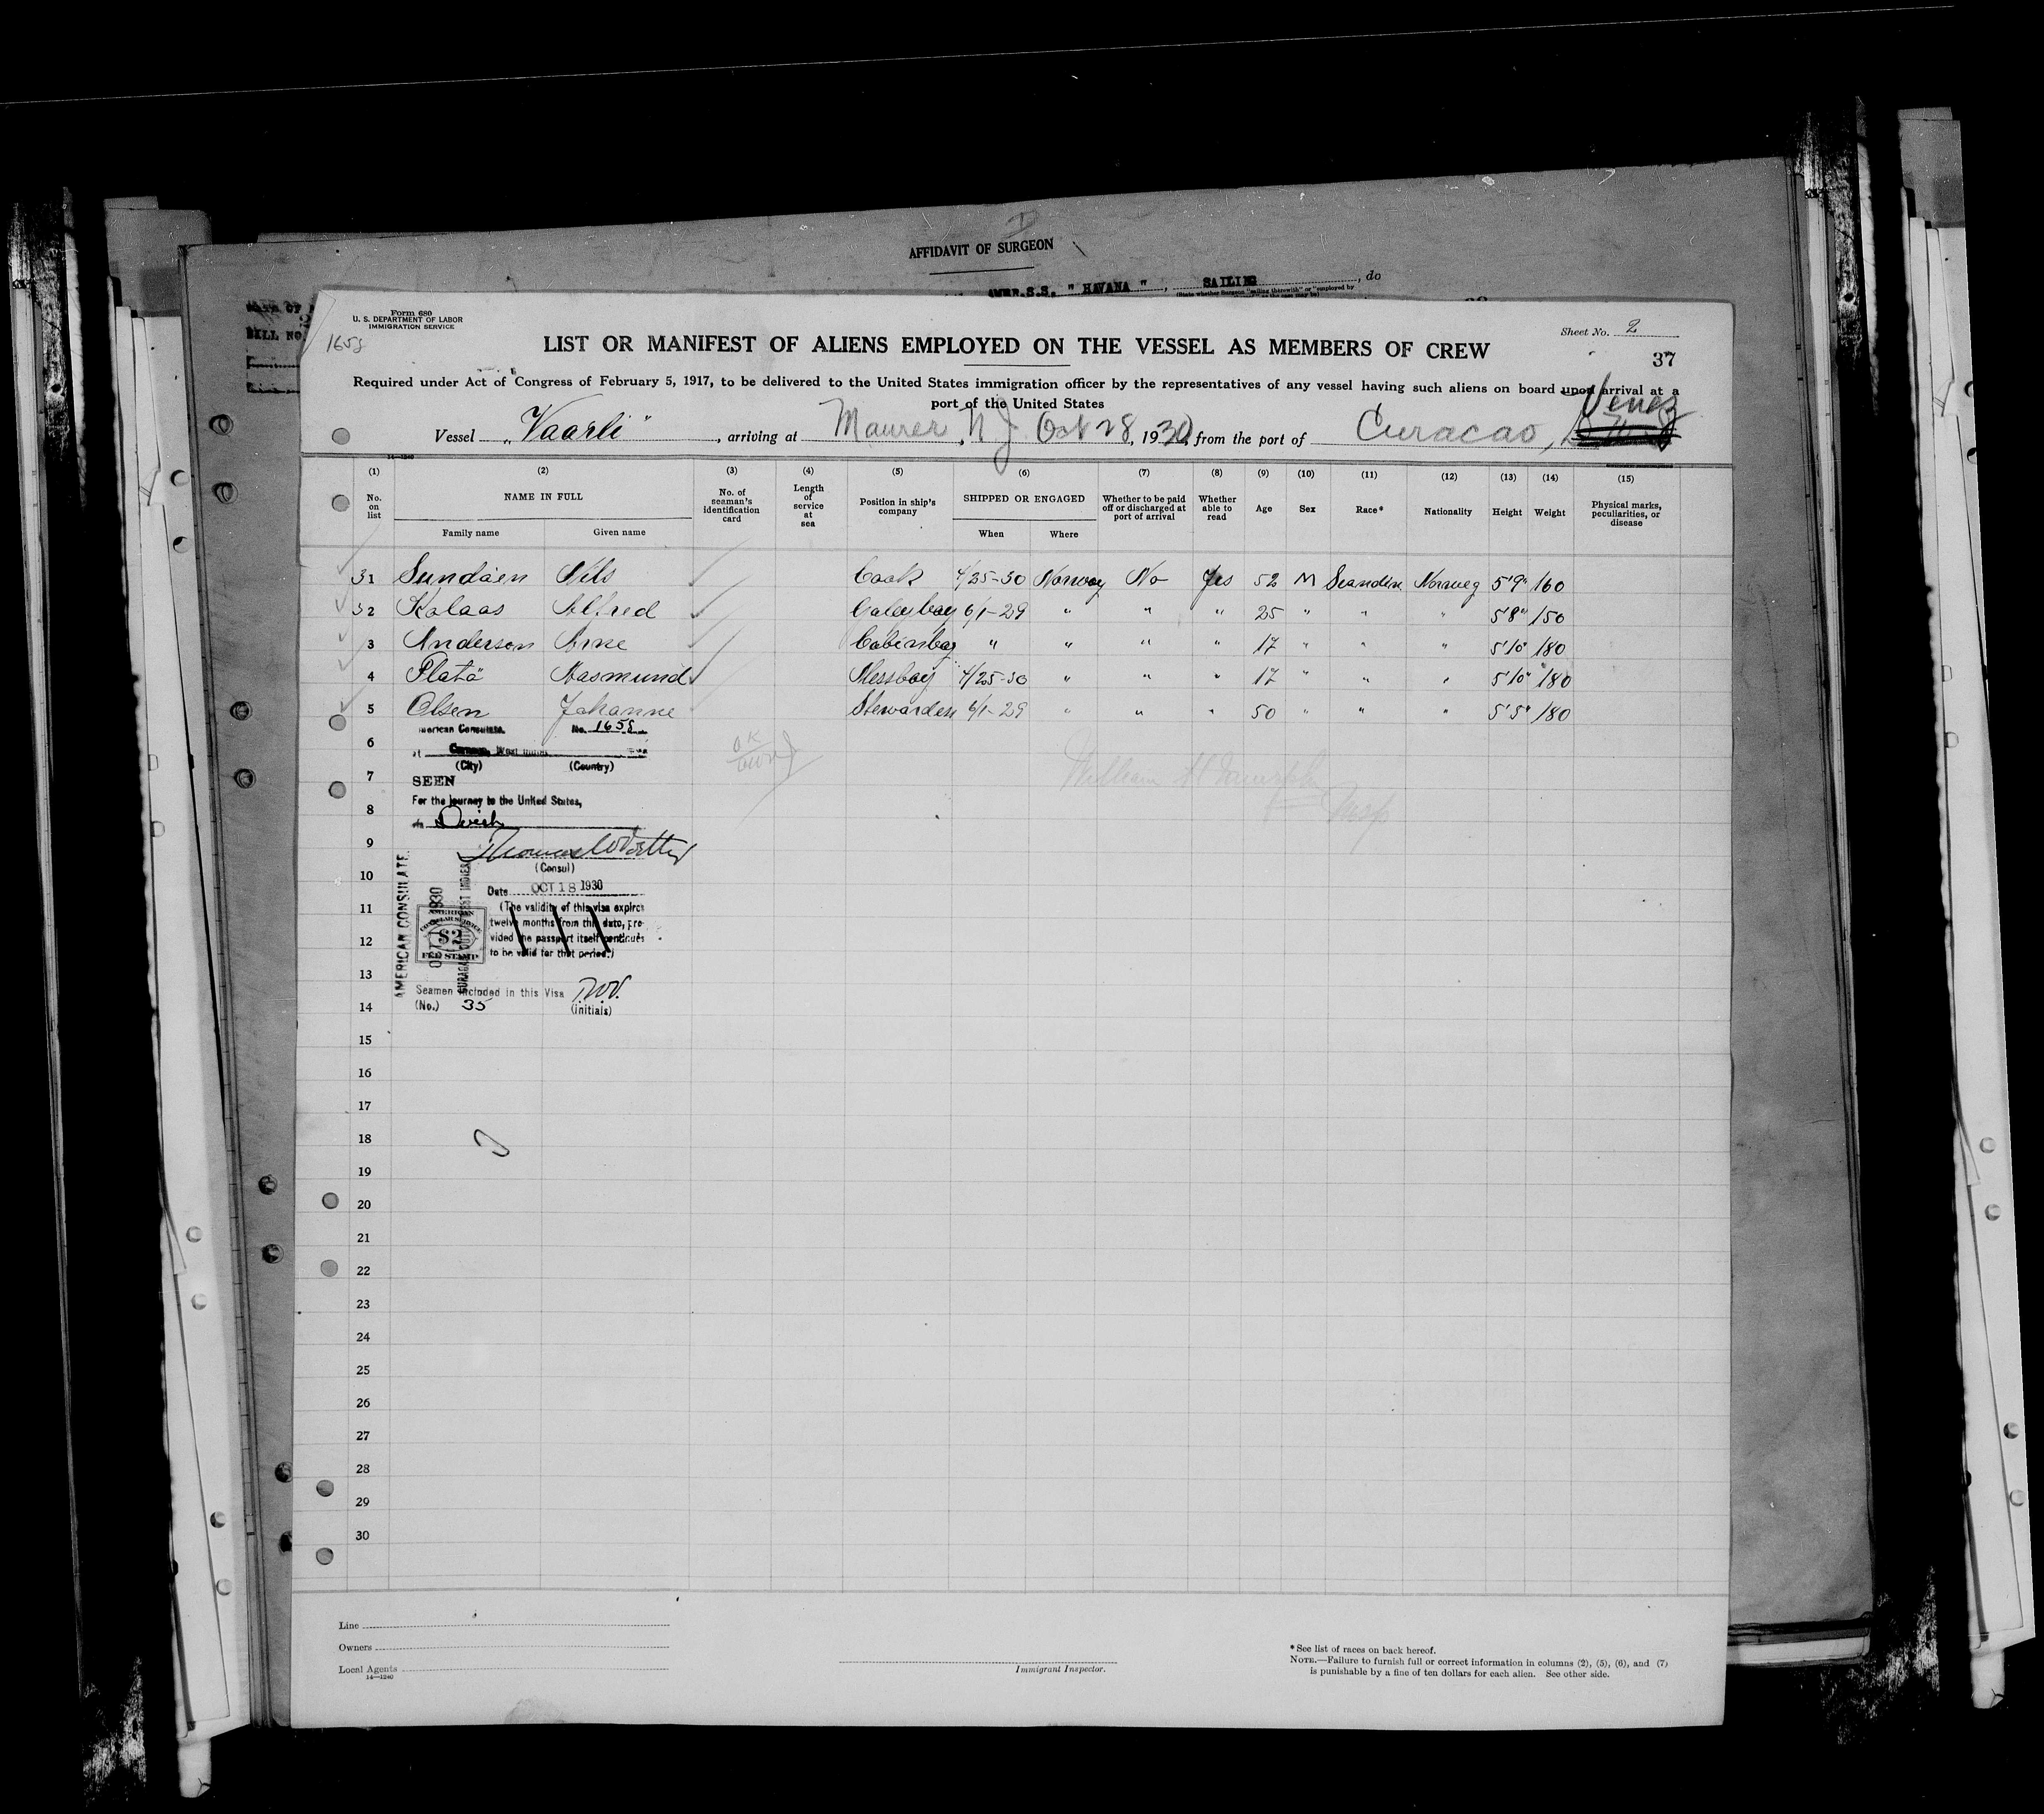 AFFIDAVIT OF SURGEON
AMER.S.S. " HAVANA ", SAILING , do
BILL NO.
Form 680
U. S. DEPARTMENT OF LABOR
IMMIGRATION SERVICE
1658
Sheet No. 2
37
LIST OR MANIFEST OF ALIENS EMPLOYED ON THE VESSEL AS MEMBERS OF CREW
Required under Act of Congress of February 5, 1917, to be delivered to the United States immigration officer by the representatives of any vessel having such aliens on board upon arrival at a
port of the United States
Venez
Vessel "Vaarli", arriving at Maurer, N J Oct 28, 1930, from the port of Curacao,
14—1240
(1) (2) (3) (4) (5) (6) (7) (8) (9) (10) (11) (12) (13) (14) (15)
No. on list NAME IN FULL No. of seaman's identification card Length of service at sea Position in ship's company SHIPPED OR ENGAGED Whether to be paid off or discharged at port of arrival Whether able to read Age Sex Race* Nationality Height Weight Physical marks, peculiarities, or disease
Family name Given name When Where
31 Sundäen Nils Cook 4/25-30 Norway No Yes 52 M Scandin Norweg 5'9" 160
32 Kalaas Alfred Galeyboy 6/1-29 " " " 25 " " " 5'8" 150
3 Anderson Arne Cabinboy " " " " 17 " " " 5'10" 180
4 Flatö Rasmund Messboy 4/25-30 " " " 17 " " " 5'10" 180
5 Olsen Johanne Stewardess 6/1-29 " " " 50 " " " 5'5" 180
American Consulate. No. 1658
6 at Curacao, West Indies
(City) (Country)
OK
7 SEEN
For the journey to the United States,
William H
Insp
8
9
(Consul)
10 Date OCT 18 1930
11 (The validity of this visa expires
twelve months from this date, pro-
12 vided the passport itself continues
to be valid for that period.)
AMERICAN CONSULATE
AMERICAN
CONSULAR SERVICE
$2
FEE STAMP
13 Seamen included in this Visa
14 (No.) 35 (initials)
15
16
17
18
19
20
21
22
23
24
25
26
27
28
29
30
Line
Owners
Local Agents
14—1240
Immigrant Inspector.
*See list of races on back hereof.
NOTE.—Failure to furnish full or correct information in columns (2), (5), (6), and (7)
is punishable by a fine of ten dollars for each alien. See other side.